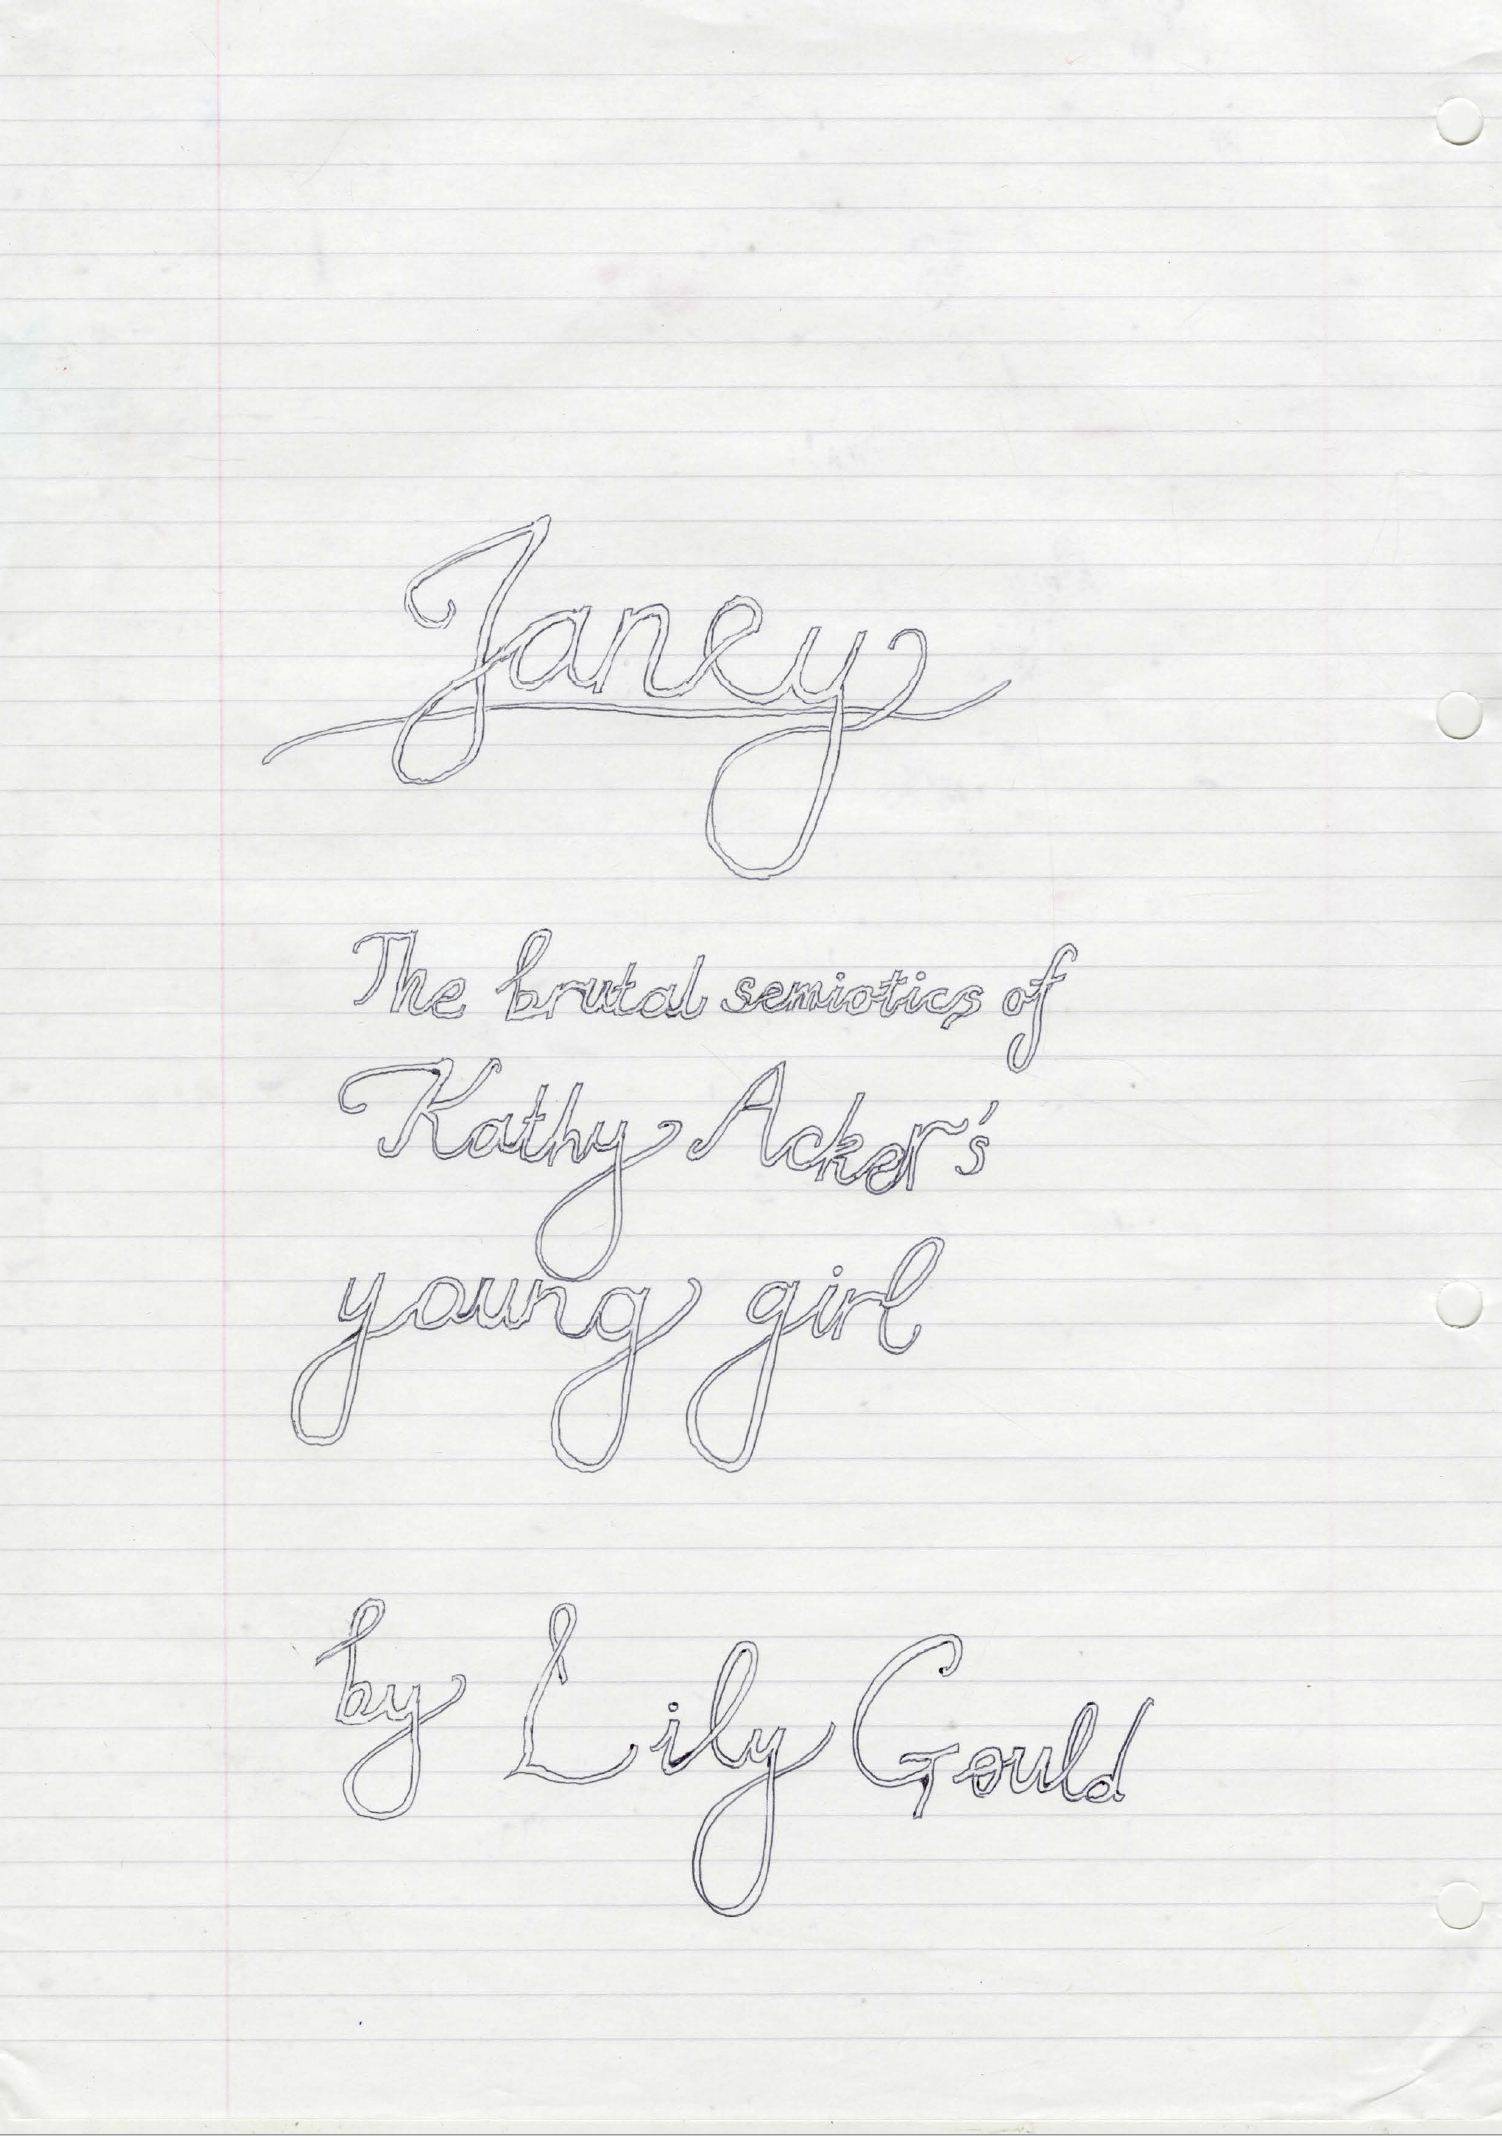 Janey
The brutal semiotics of
Kathy Acker's
young girl
by Lily Gould